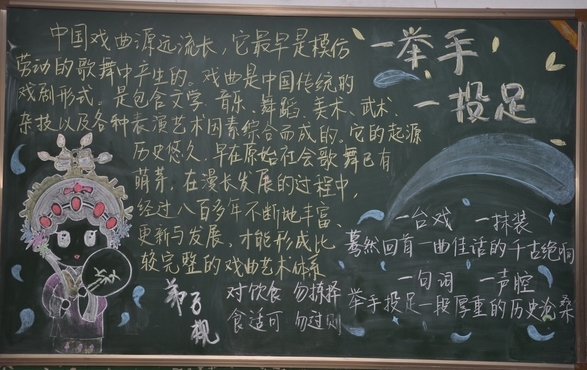 中国戏曲源远流长，它最早是模仿
劳动的歌舞中产生的。戏曲是中国传统的
戏剧形式。是包含文学、音乐、舞蹈、美术、武术、
杂技以及各种表演艺术因素综合而成的。它的起源
历史悠久，早在原始社会歌舞已有
萌芽，在漫长发展的过程中，
经过八百多年不断地丰富、
更新与发展，才能形成比
较完整的戏曲艺术体系
一举手
一投足
一台戏 一抹装
蓦然回首一曲佳话的千古绝响
一句词 一声腔
举手投足一段厚重的历史沧桑
弟子规
对饮食 勿拣择
食适可 勿过则